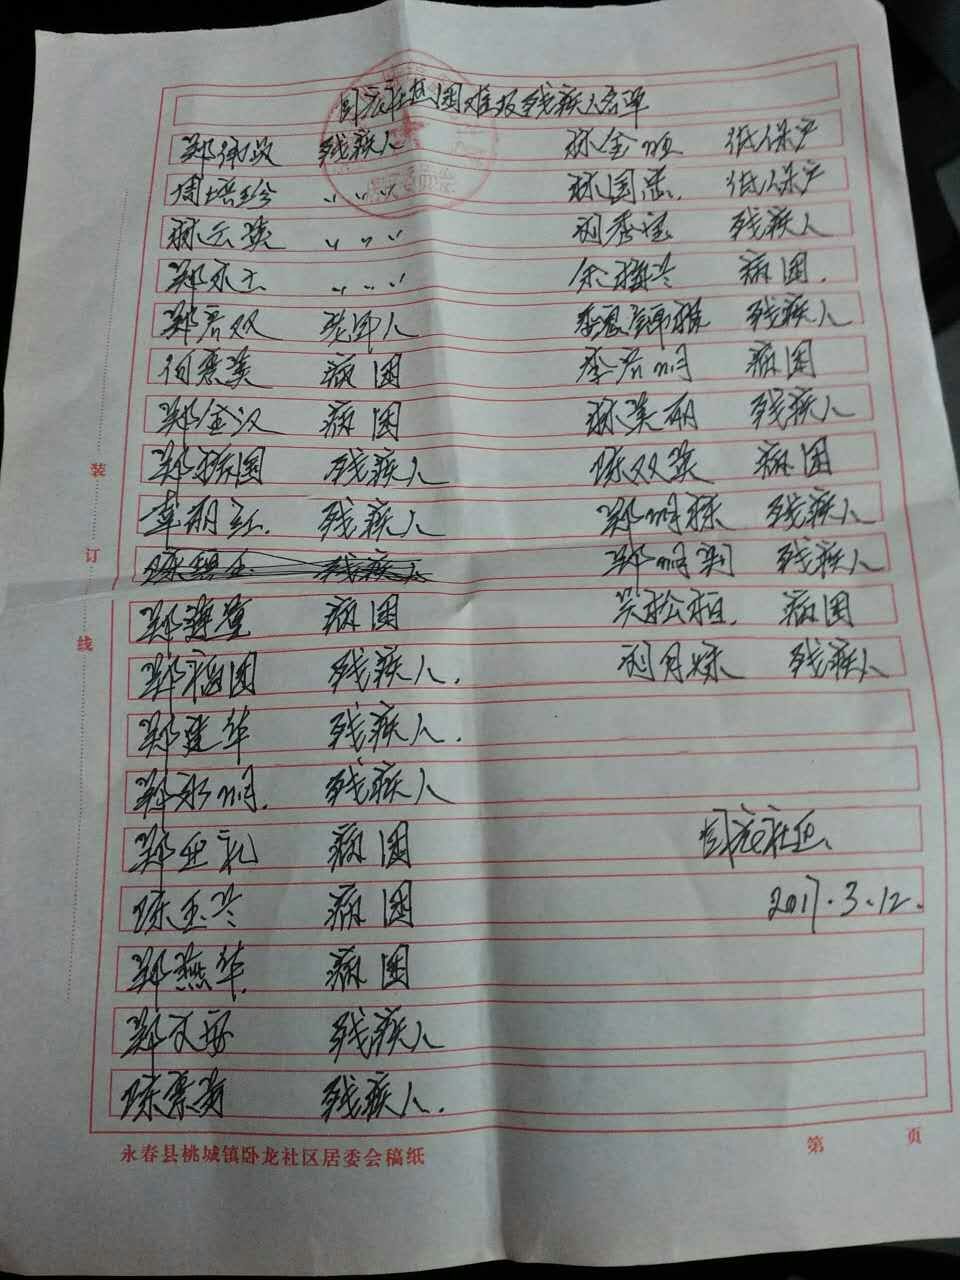 卧龙社区困难及残疾人名单
郑伟政 残疾人 林金顺 低保户
周培珍 〃 〃 〃 林国忠. 低保户
林云英 〃 〃 〃 刘秀宝 残疾人
郑永玉 〃 〃 〃 余梅兰 病困.
郑君双 残疾人
伯惠英 病困 李君明 病困
郑金汉 病困 林美丽 残疾人
郑振国 残疾人 陈双英 病困
章丽红. 残疾人 郑明林 残疾人
陈碧玉. 残疾人 郑明荆 残疾人
郑莲堇 病困 吴松柏. 病困
郑福国 残疾人. 刘月妹 残疾人
郑建华 残疾人.
郑永明. 残疾人
郑亚礼 病困 卧龙社区.
陈玉兰 病困 2017.3.12.
郑燕华. 病困
郑文安 残疾人
陈惠英 残疾人.
装
订
线
永春县桃城镇卧龙社区居委会稿纸
第 页